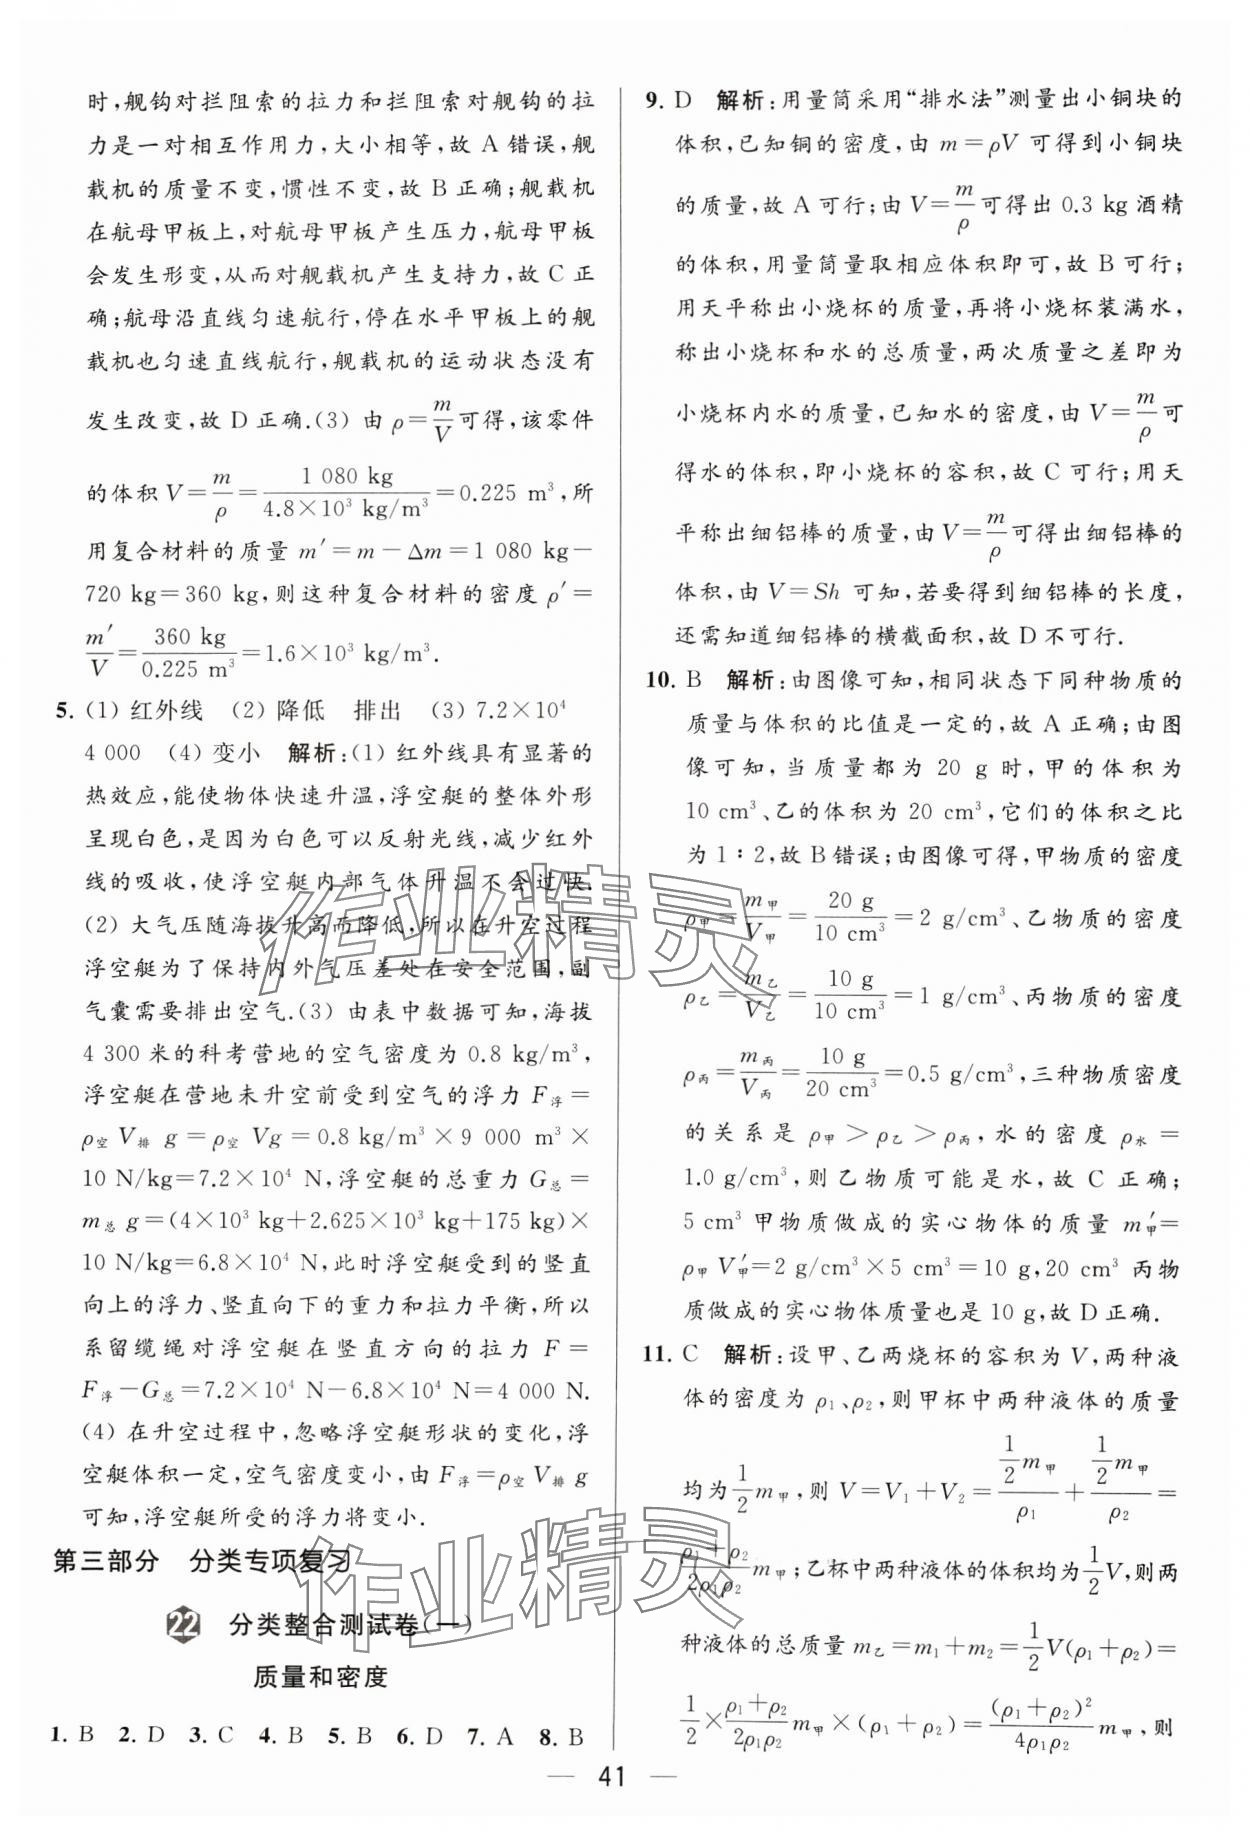 时,舰钩对拦阻索的拉力和拦阻索对舰钩的拉
力是一对相互作用力,大小相等,故 A 错误,舰
载机的质量不变,惯性不变,故 B 正确;舰载机
在航母甲板上,对航母甲板产生压力,航母甲板
会发生形变,从而对舰载机产生支持力,故 C 正
确;航母沿直线匀速航行,停在水平甲板上的舰
载机也匀速直线航行,舰载机的运动状态没有
发生改变,故 D 正确.(3) 由 ρ=m/V可得,该零件
的体积 V=m/ρ=1 080 kg/4.8×10³ kg/m³=0.225 m³,所
用复合材料的质量 m′=m-Δm=1 080 kg-
720 kg=360 kg,则这种复合材料的密度 ρ′=
m′/V=360 kg/0.225 m³=1.6×10³ kg/m³.
5. (1) 红外线 (2) 降低 排出 (3) 7.2×10⁴
4 000 (4) 变小 解析:(1) 红外线具有显著的
热效应,能使物体快速升温,浮空艇的整体外形
呈现白色,是因为白色可以反射光线,减少红外
线的吸收,使浮空艇内部气体升温不会过快.
(2) 大气压随海拔升高而降低,所以在升空过程
浮空艇为了保持内外气压差处在安全范围,副
气囊需要排出空气.(3) 由表中数据可知,海拔
4 300 米的科考营地的空气密度为 0.8 kg/m³,
浮空艇在营地未升空前受到空气的浮力 F浮=
ρ空 V排 g=ρ空 Vg=0.8 kg/m³×9 000 m³×
10 N/kg=7.2×10⁴ N,浮空艇的总重力 G总=
m总 g=(4×10³ kg+2.625×10³ kg+175 kg)×
10 N/kg=6.8×10⁴ N,此时浮空艇受到的竖直
向上的浮力、竖直向下的重力和拉力平衡,所以
系留缆绳对浮空艇在竖直方向的拉力 F=
F浮-G总=7.2×10⁴ N-6.8×10⁴ N=4 000 N.
(4) 在升空过程中,忽略浮空艇形状的变化,浮
空艇体积一定,空气密度变小,由 F浮=ρ空 V排 g
可知,浮空艇所受的浮力将变小.
第三部分 分类专项复习
22 分类整合测试卷(一)
质量和密度
1. B 2. D 3. C 4. B 5. B 6. D 7. A 8. B
9. D 解析:用量筒采用“排水法”测量出小铜块的
体积,已知铜的密度,由 m=ρV 可得到小铜块
的质量,故 A 可行;由 V=m/ρ可得出 0.3 kg 酒精
的体积,用量筒量取相应体积即可,故 B 可行;
用天平称出小烧杯的质量,再将小烧杯装满水,
称出小烧杯和水的总质量,两次质量之差即为
小烧杯内水的质量,已知水的密度,由 V=m/ρ可
得水的体积,即小烧杯的容积,故 C 可行;用天
平称出细铝棒的质量,由 V=m/ρ可得出细铝棒的
体积,由 V=Sh 可知,若要得到细铝棒的长度,
还需知道细铝棒的横截面积,故 D 不可行.
10. B 解析:由图像可知,相同状态下同种物质的
质量与体积的比值是一定的,故 A 正确;由图
像可知,当质量都为 20 g 时,甲的体积为
10 cm³、乙的体积为 20 cm³,它们的体积之比
为 1∶2,故 B 错误;由图像可得,甲物质的密度
ρ甲=m甲/V甲=20 g/10 cm³=2 g/cm³、乙物质的密度
ρ乙=m乙/V乙=10 g/10 cm³=1 g/cm³、丙物质的密度
ρ丙=m丙/V丙=10 g/20 cm³=0.5 g/cm³,三种物质密度
的关系是 ρ甲>ρ乙>ρ丙,水的密度 ρ水=
1.0 g/cm³,则乙物质可能是水,故 C 正确;
5 cm³ 甲物质做成的实心物体的质量 m′甲=
ρ甲 V′甲=2 g/cm³×5 cm³=10 g,20 cm³ 丙物
质做成的实心物体质量也是 10 g,故 D 正确.
11. C 解析:设甲、乙两烧杯的容积为 V,两种液
体的密度为 ρ₁、ρ₂,则甲杯中两种液体的质量
均为1/2m甲,则 V=V₁+V₂=(1/2m甲)/ρ₁+(1/2m甲)/ρ₂=
(ρ₁+ρ₂)/2ρ₁ρ₂ m甲;乙杯中两种液体的体积均为1/2V,则两
种液体的总质量 m乙=m₁+m₂=1/2V(ρ₁+ρ₂)=
1/2×(ρ₁+ρ₂)/2ρ₁ρ₂ m甲×(ρ₁+ρ₂)=(ρ₁+ρ₂)²/4ρ₁ρ₂ m甲,则
41
作业精灵
作业精灵